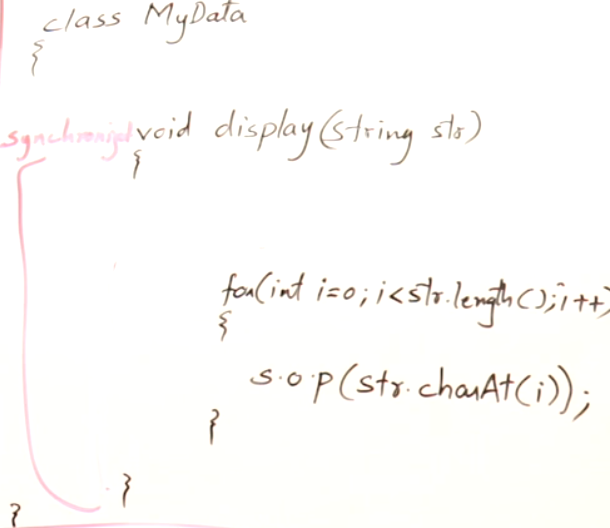 class MyData
{
synchronized void display(string str)
{
for(int i=0; i<str.length(); i++)
{
s.o.p(str.charAt(i));
}
}
}